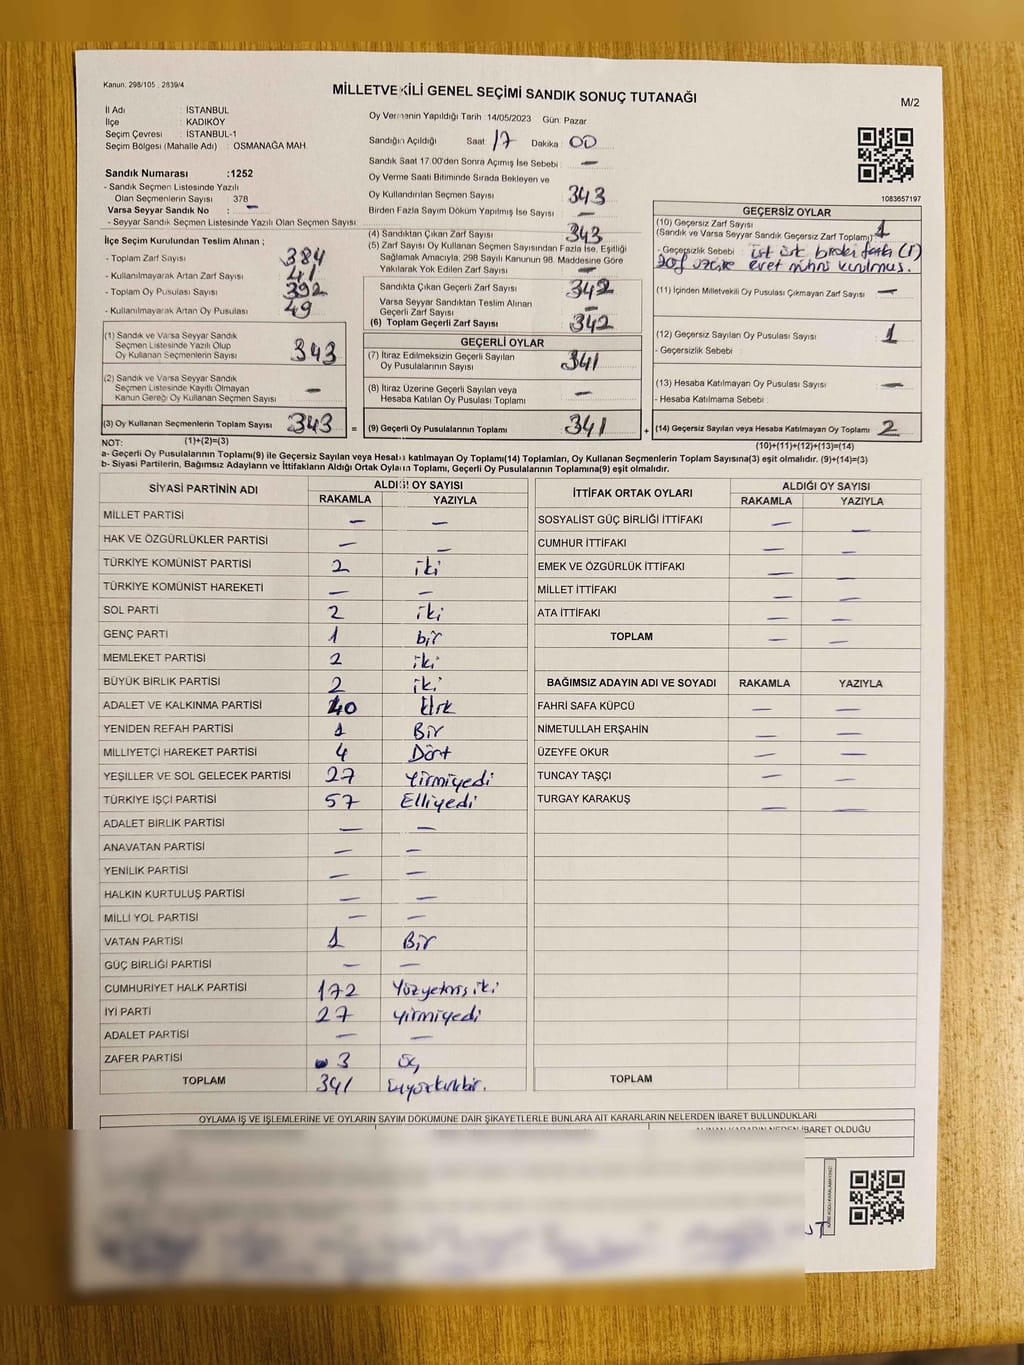 Kanun: 298/105 2839/4
MİLLETVEKİLİ GENEL SEÇİMİ SANDIK SONUÇ TUTANAĞI
M/2
İl Adı : İSTANBUL
İlçe : KADIKÖY
Seçim Çevresi : İSTANBUL-1
Seçim Bölgesi (Mahalle Adı) : OSMANAĞA MAH.
Sandık Numarası :1252
- Sandık Seçmen Listesinde Yazılı
Olan Seçmenlerin Sayısı 378
Varsa Seyyar Sandık No : –
- Seyyar Sandık Seçmen Listesinde Yazılı Olan Seçmen Sayısı:
Oy Vermenin Yapıldığı Tarih :14/05/2023 Gün: Pazar
Sandığın Açıldığı Saat: 17 Dakika: 00
Sandık Saat 17:00'den Sonra Açımış İse Sebebi : –
Oy Verme Saati Bitiminde Sırada Bekleyen ve
Oy Kullandırılan Seçmen Sayısı 343
Birden Fazla Sayım Döküm Yapılmış İse Sayısı : –
1083657197
İlçe Seçim Kurulundan Teslim Alınan ;
- Toplam Zarf Sayısı : 384
- Kullanılmayarak Artan Zarf Sayısı : 41
- Toplam Oy Pusulası Sayısı : 392
- Kullanılmayarak Artan Oy Pusulası : 49
(1) Sandık ve Varsa Seyyar Sandık
Seçmen Listesinde Yazılı Olup
Oy Kullanan Seçmenlerin Sayısı 343
(2) Sandık ve Varsa Seyyar Sandık
Seçmen Listesinde Kayıtlı Olmayan
Kanun Gereği Oy Kullanan Seçmen Sayısı : –
(3) Oy Kullanan Seçmenlerin Toplam Sayısı 343 =
(4) Sandıktan Çıkan Zarf Sayısı 343
(5) Zarf Sayısı Oy Kullanan Seçmen Sayısından Fazla İse, Eşitliği
Sağlamak Amacıyla, 298 Sayılı Kanunun 98. Maddesine Göre
Yakılarak Yok Edilen Zarf Sayısı : –
Sandıkta Çıkan Geçerli Zarf Sayısı : 342
Varsa Seyyar Sandıktan Teslim Alınan
Geçerli Zarf Sayısı : –
(6) Toplam Geçerli Zarf Sayısı : 342
GEÇERLİ OYLAR
(7) İtiraz Edilmeksizin Geçerli Sayılan
Oy Pusulalarının Sayısı : 341
(8) İtiraz Üzerine Geçerli Sayılan veya
Hesaba Katılan Oy Pusulası Toplamı : –
(9) Geçerli Oy Pusulalarının Toplamı 341 +
GEÇERSİZ OYLAR
(10) Geçersiz Zarf Sayısı
(Sandık ve Varsa Seyyar Sandık Geçersiz Zarf Toplamı) : 1
- Geçersizlik Sebebi :
zarf üzeri evet mührü vurulmuş.
(11) İçinden Milletvekili Oy Pusulası Çıkmayan Zarf Sayısı : –
(12) Geçersiz Sayılan Oy Pusulası Sayısı : 1
- Geçersizlik Sebebi :
(13) Hesaba Katılmayan Oy Pusulası Sayısı : –
- Hesaba Katılmama Sebebi :
(14) Geçersiz Sayılan veya Hesaba Katılmayan Oy Toplamı 2
NOT: (1)+(2)=(3)
(10)+(11)+(12)+(13)=(14)
a- Geçerli Oy Pusulalarının Toplamı(9) ile Geçersiz Sayılan veya Hesaba katılmayan Oy Toplamı(14) Toplamları, Oy Kullanan Seçmenlerin Toplam Sayısına(3) eşit olmalıdır. (9)+(14)=(3)
b- Siyasi Partilerin, Bağımsız Adayların ve İttifakların Aldığı Ortak Oyların Toplamı, Geçerli Oy Pusulalarının Toplamına(9) eşit olmalıdır.
SİYASİ PARTİNİN ADI ALDIĞI OY SAYISI
RAKAMLA YAZIYLA
MİLLET PARTİSİ – –
HAK VE ÖZGÜRLÜKLER PARTİSİ – –
TÜRKİYE KOMÜNİST PARTİSİ 2 iki
TÜRKİYE KOMÜNİST HAREKETİ – –
SOL PARTİ 2 iki
GENÇ PARTİ 1 bir
MEMLEKET PARTİSİ 2 iki
BÜYÜK BİRLİK PARTİSİ 2 iki
ADALET VE KALKINMA PARTİSİ 40 kırk
YENİDEN REFAH PARTİSİ 1 Bir
MİLLİYETÇİ HAREKET PARTİSİ 4 Dört
YEŞİLLER VE SOL GELECEK PARTİSİ 27 Yirmiyedi
TÜRKİYE İŞÇİ PARTİSİ 57 Elliyedi
ADALET BİRLİK PARTİSİ – –
ANAVATAN PARTİSİ – –
YENİLİK PARTİSİ – –
HALKIN KURTULUŞ PARTİSİ – –
MİLLİ YOL PARTİSİ – –
VATAN PARTİSİ 1 Bir
GÜÇ BİRLİĞİ PARTİSİ – –
CUMHURİYET HALK PARTİSİ 172 Yüzyetmişiki
İYİ PARTİ 27 yirmiyedi
ADALET PARTİSİ – –
ZAFER PARTİSİ 3 üç
TOPLAM 341 Üçyüzkırkbir.
İTTİFAK ORTAK OYLARI ALDIĞI OY SAYISI
RAKAMLA YAZIYLA
SOSYALİST GÜÇ BİRLİĞİ İTTİFAKI – –
CUMHUR İTTİFAKI – –
EMEK VE ÖZGÜRLÜK İTTİFAKI – –
MİLLET İTTİFAKI – –
ATA İTTİFAKI – –
TOPLAM – –
BAĞIMSIZ ADAYIN ADI VE SOYADI RAKAMLA YAZIYLA
FAHRİ SAFA KÜPCÜ – –
NİMETULLAH ERŞAHİN – –
ÜZEYFE OKUR – –
TUNCAY TAŞÇI – –
TURGAY KARAKUŞ – –
TOPLAM
OYLAMA İŞ VE İŞLEMLERİNE VE OYLARIN SAYIM DÖKÜMÜNE DAİR ŞİKAYETLERLE BUNLARA AİT KARARLARIN NELERDEN İBARET BULUNDUKLARI
ALINAN KARARIN NEDEN İBARET OLDUĞU